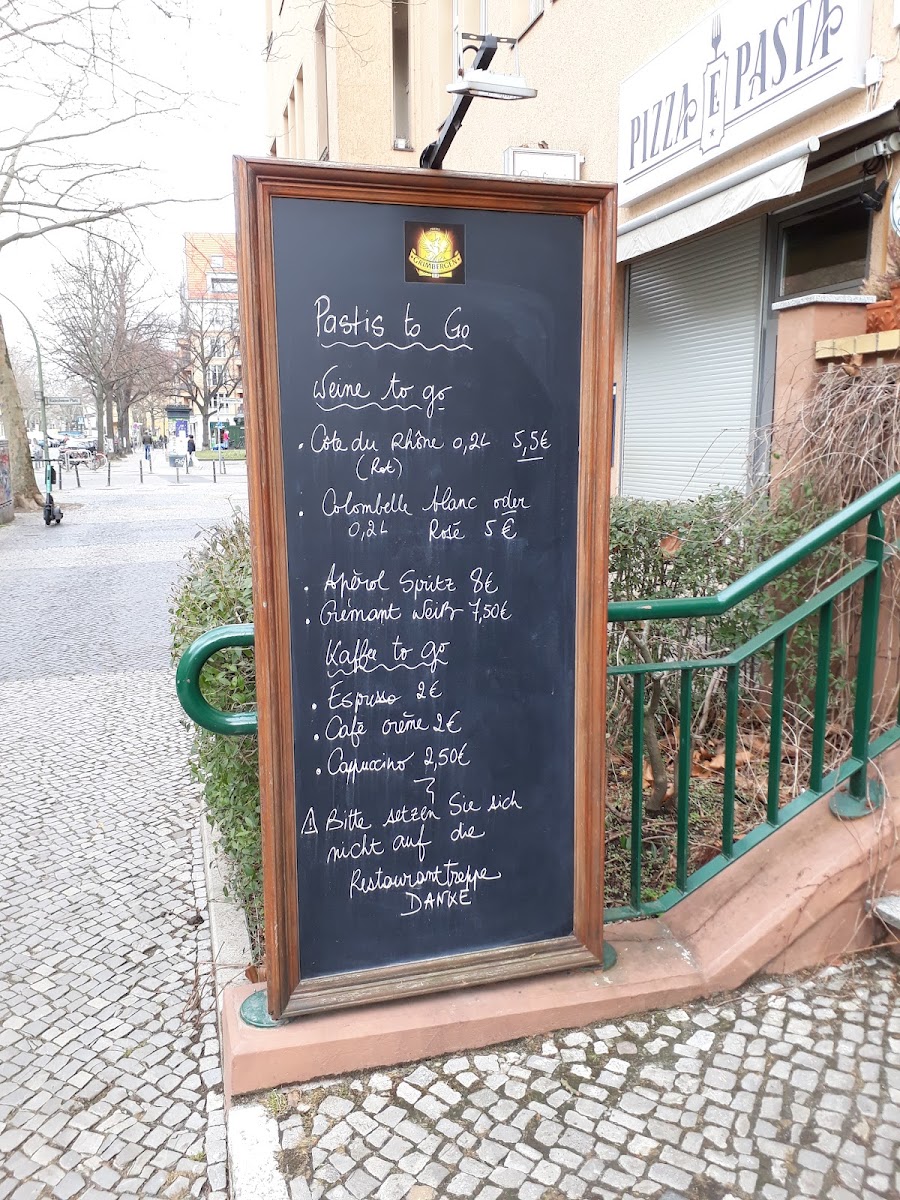 PIZZA E PASTA
GRIMBERGEN
Pastis to Go
Weine to go
• Côte du Rhône 0,2L 5,5€
(Rot)
• Colombelle blanc oder
0,2L Rosé 5€
• Apérol Spritz 8€
• Crémant Weiß 7,50€
Kaffee to go
• Espresso 2€
• Café crème 2€
• Cappuccino 2,50€
⚠ Bitte setzen Sie sich
nicht auf die
Restauranttreppe
DANKE